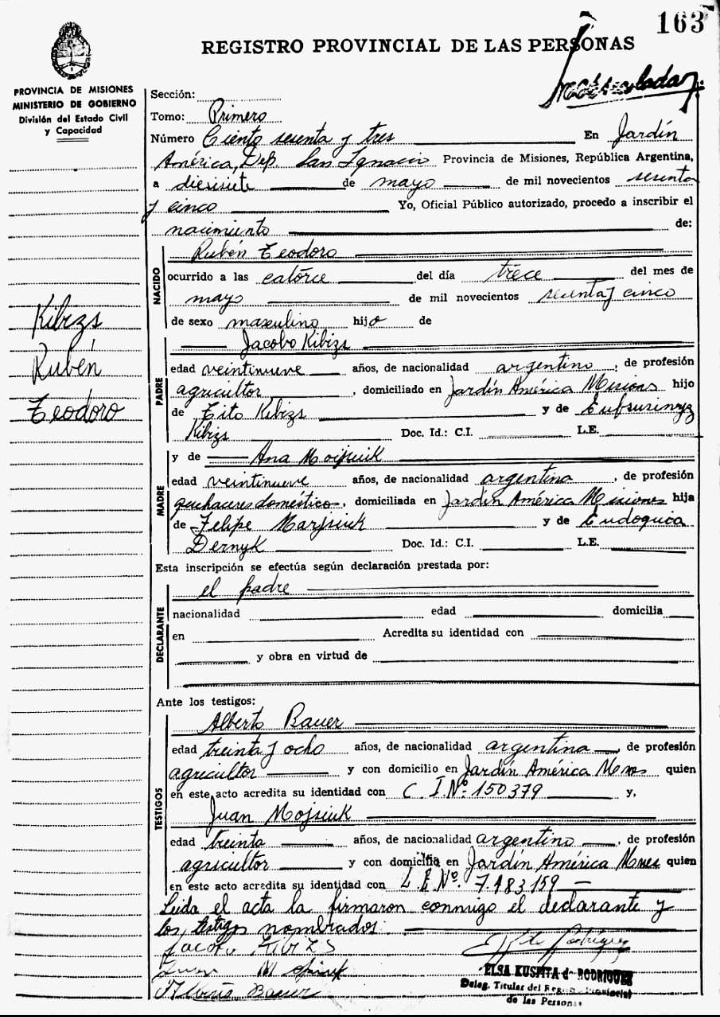 163
REGISTRO PROVINCIAL DE LAS PERSONAS
PROVINCIA DE MISIONES
MINISTERIO DE GOBIERNO
División del Estado Civil
y Capacidad
Kibizs
Rubén
Teodoro
Sección:
Tomo: Primero
Número Ciento sesenta y tres En Jardín
América, Dep. San Ignacio Provincia de Misiones, República Argentina,
a diesisiete de mayo de mil novecientos sesenta
y cinco Yo, Oficial Público autorizado, procedo a inscribir el
nacimiento de:
NACIDO
Rubén Teodoro
ocurrido a las catorce del día trece del mes de
mayo de mil novecientos sesenta y cinco
de sexo masculino hijo de
Jacobo Kibizs
PADRE
edad veintinueve años, de nacionalidad argentino, de profesión
agricultor, domiciliado en Jardín América Misiones hijo
de Tito Kibizs y de
Kibizs Doc. Id.: C.I. L.E.
y de Ana Mojsiuk
MADRE
edad veintinueve años, de nacionalidad argentina, de profesión
quehaceres domésticos, domiciliada en Jardín América Misiones hija
de Felipe y de Eudoquia
Dernyk Doc. Id.: C.I. L.E.
Esta inscripción se efectúa según declaración prestada por:
el padre
DECLARANTE
nacionalidad edad domicilia
en Acredita su identidad con
y obra en virtud de
Ante los testigos:
Alberto Bauer
TESTIGOS
edad treinta y ocho años, de nacionalidad argentina, de profesión
agricultor y con domicilio en Jardín América Mnes quien
en este acto acredita su identidad con C. I Nº. 150379 y,
Juan Mojsiuk
edad treinta años, de nacionalidad argentino, de profesión
agricultor y con domicilio en Jardín América Mnes quien
en este acto acredita su identidad con L.E.Nº. 7.483.159
Leída el acta la firmaron conmigo el declarante y
los testigos nombrados.
Jacobo KIBIZS
Juan
Alberto Bauer
ELSA KUSPITA de RODRIGUEZ
Deleg. Titular del Registro Provincial
de las Personas